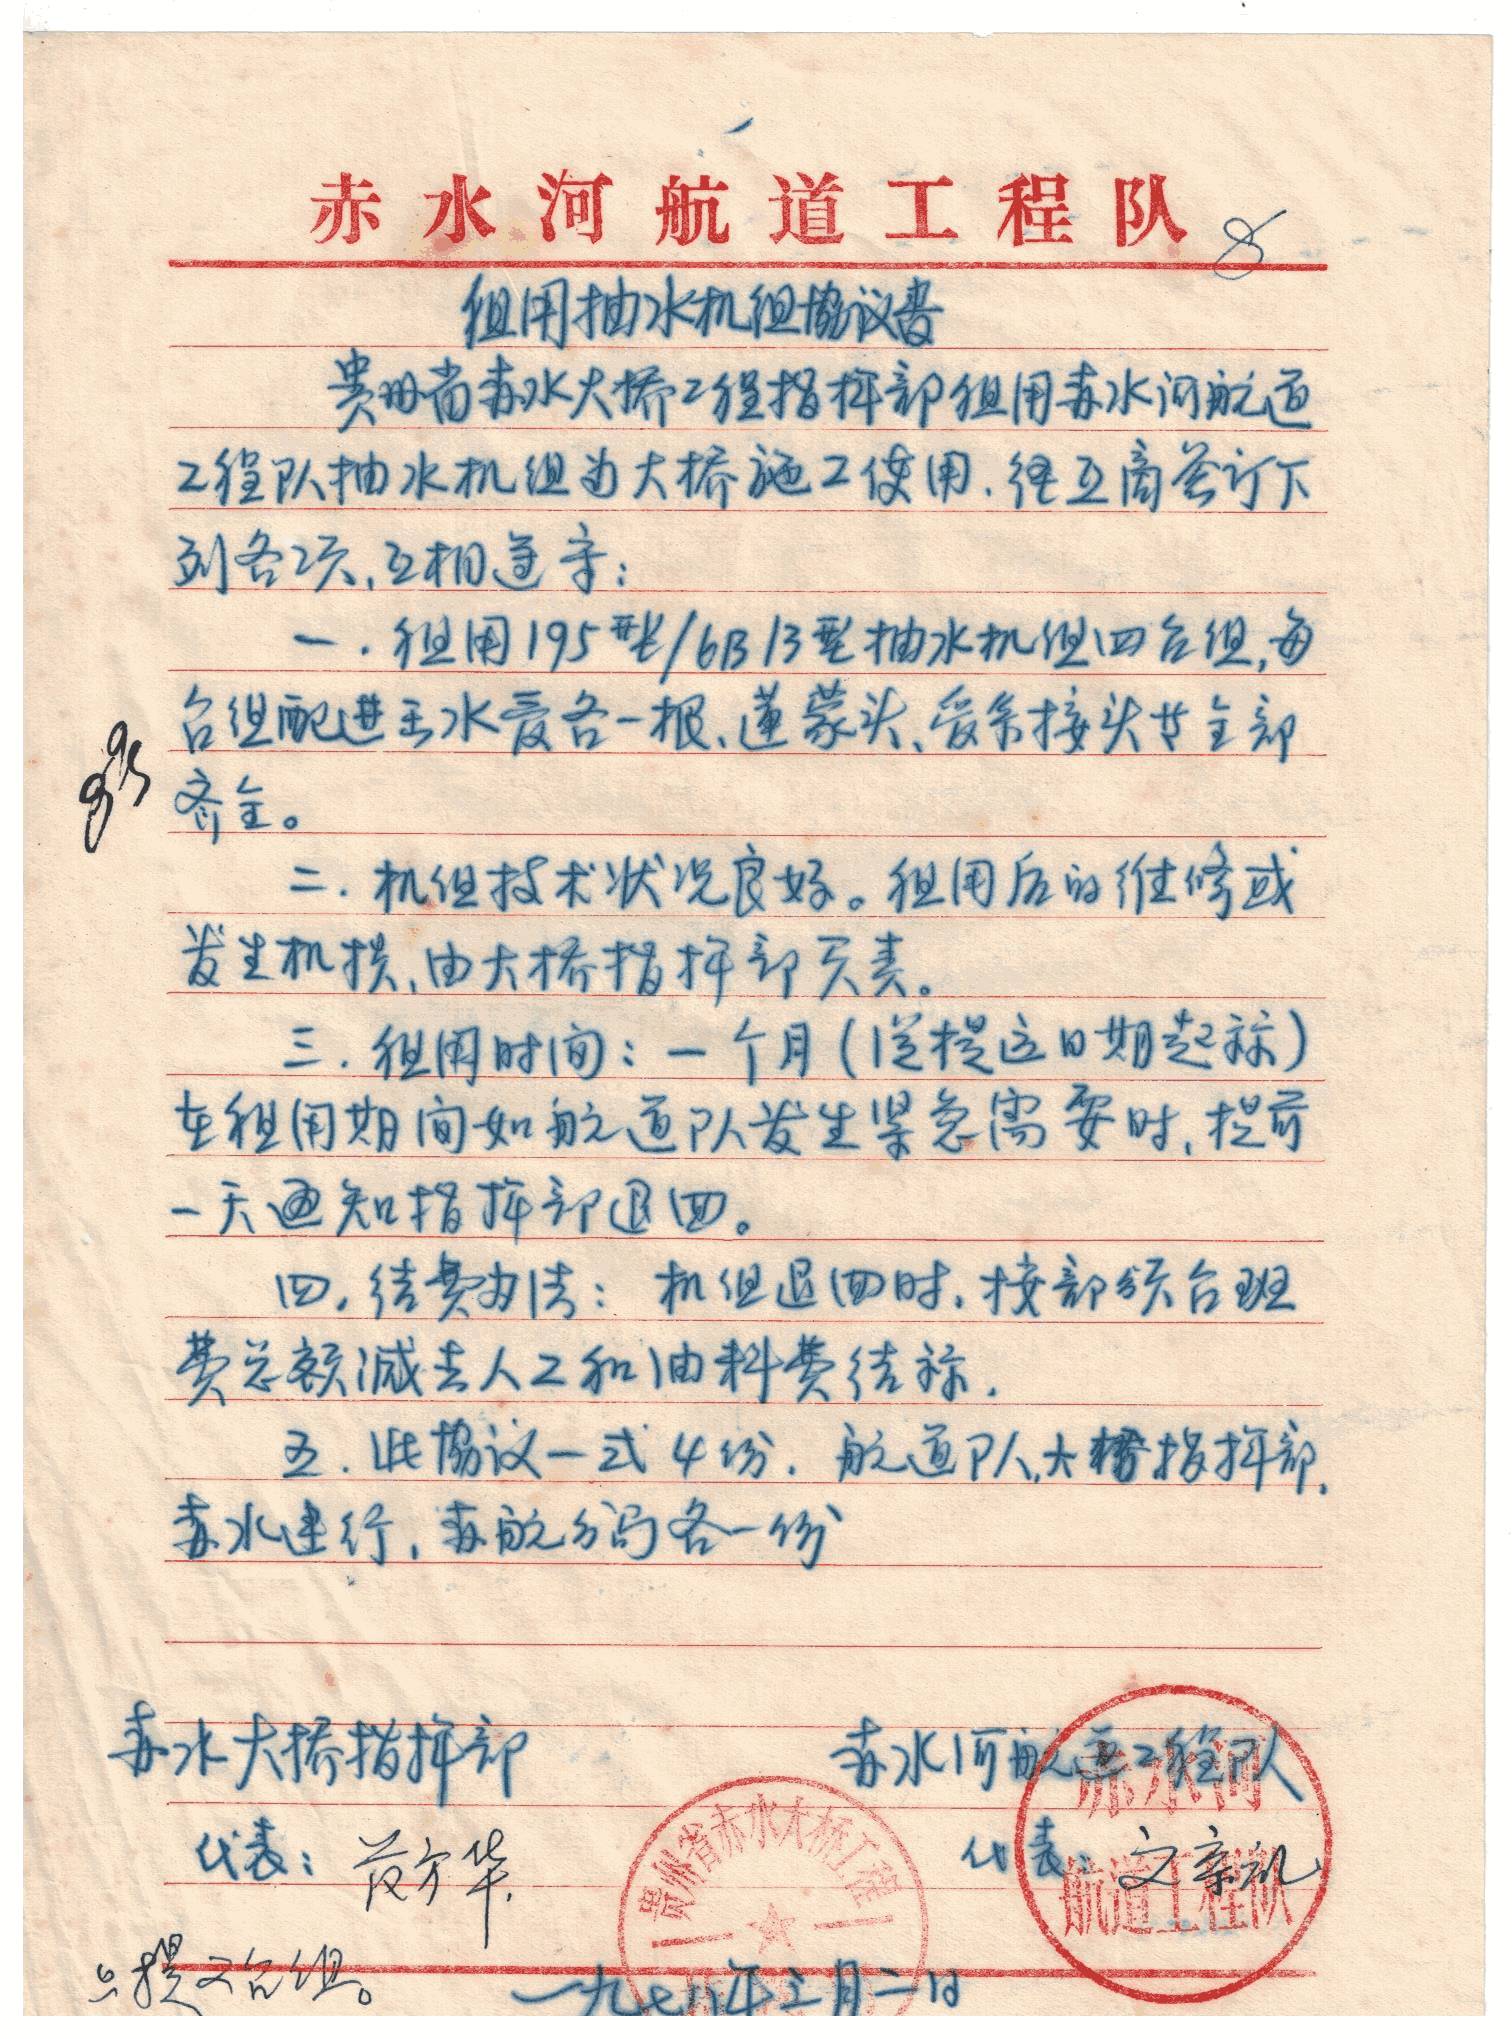 赤水河航道工程队
8
租用抽水机组协议书
贵州省赤水大桥工程指挥部租用赤水河航道
工程队抽水机组为大桥施工使用、经互商签订下
列各项,互相遵守:
一.租用195型/6B13型抽水机组四台组,每
台组配进去水管各一根、莲蒙头、管条接头甘全部
齐全。
二.机组技术状况良好。租用后的维修或
发生机损,由大桥指挥部负责。
三.租用时间:一个月(从提运日期起标)
在租用期间如航道队发生紧急需要时,提前
一天通知指挥部退回。
四.结费办法: 机组退回时,按部颁台班
费总额减去人工和油料费结标.
五.此协议一式4份.航道队,大桥指挥部,
赤水建行,赤航分局各一份
赤水大桥指挥部
赤水河航道工程队
代表:
代表:
贵州省赤水大桥工程
赤水河
航道工程队
只提 台组。
一九七八年三月二日